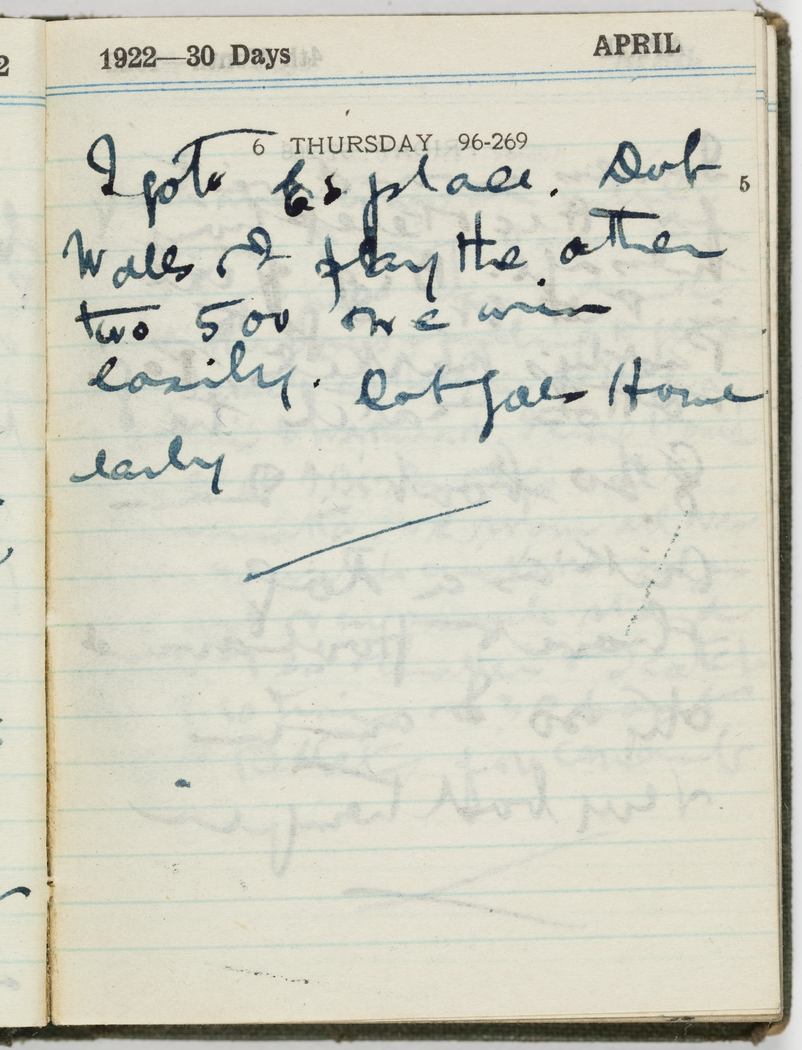 2
1922—30 Days APRIL
6 THURSDAY 96-269
I go to Es place. Dot
5
Walls & I play the other
two 500 & we win
easily. Dot goes Home
early